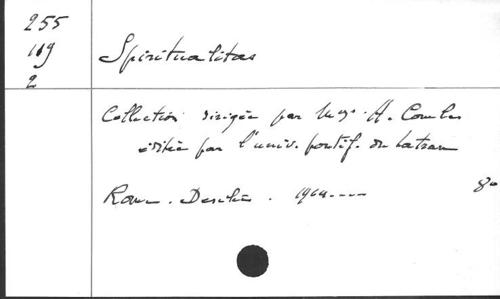 255
119
2
Spiritualitas
Collection dirigée par Mgr. A. Combes
éditée par l'univ. pontif. du Latran
Rome. Desclée. 1964----
8°